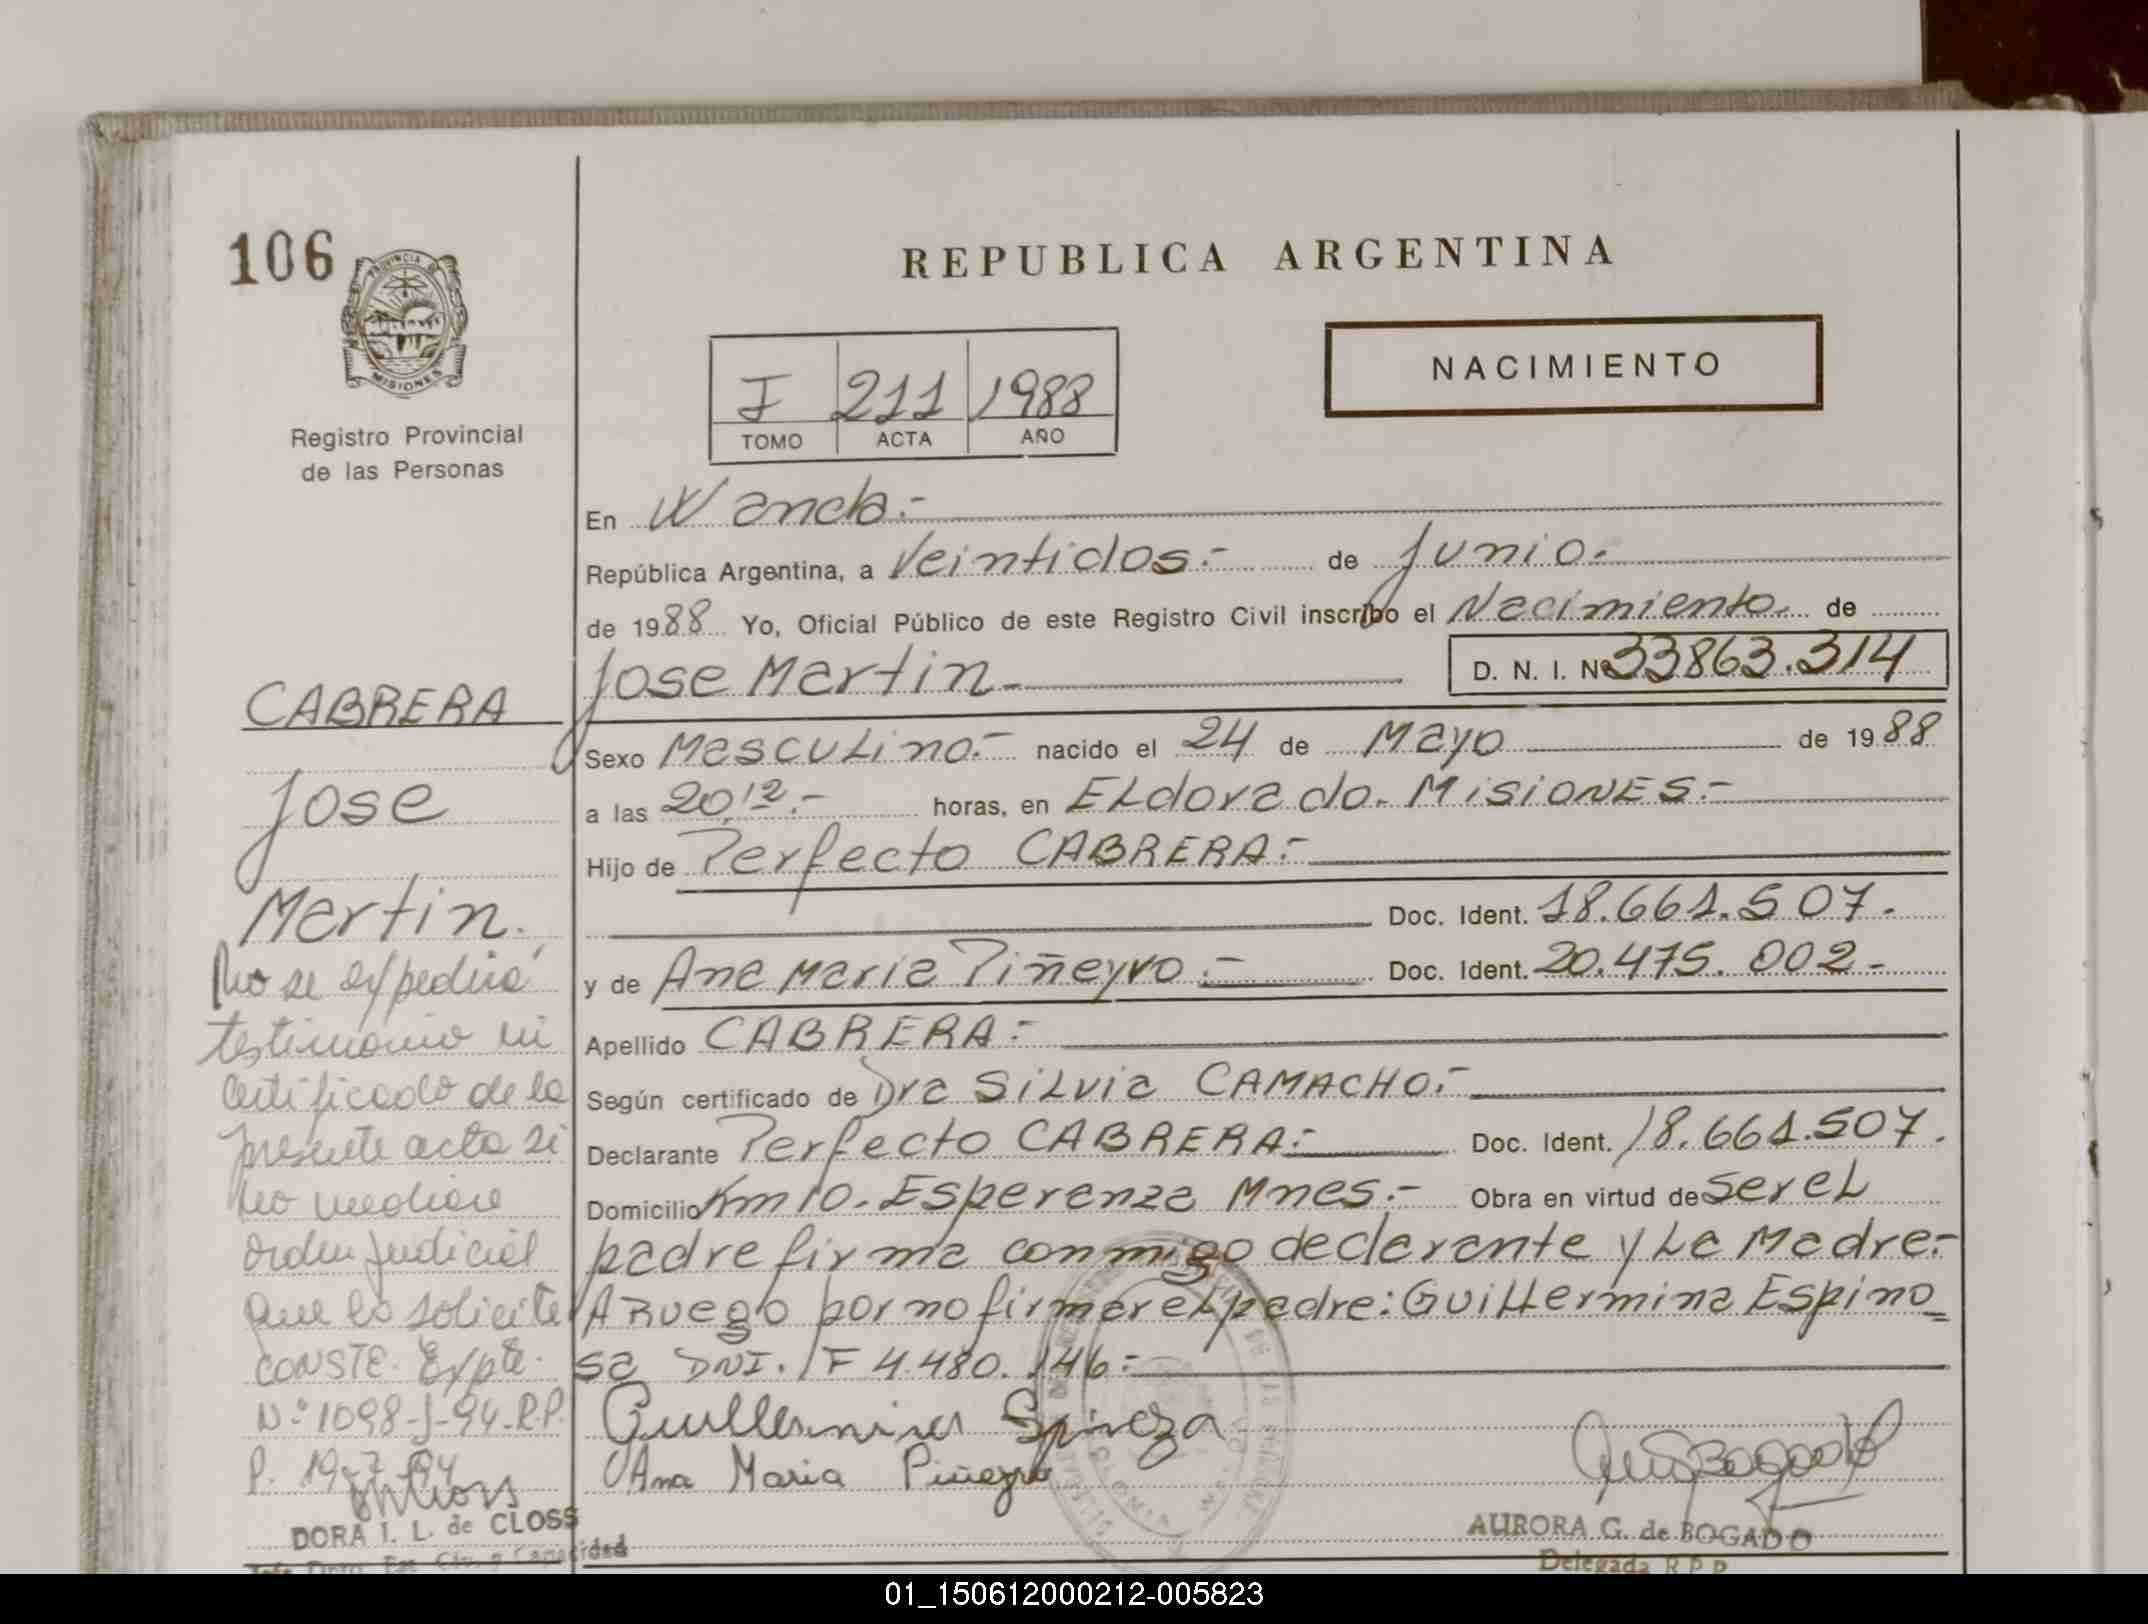 106
PROVINCIA DE
MISIONES
Registro Provincial
de las Personas
REPUBLICA ARGENTINA
NACIMIENTO
I 211 1988
TOMO ACTA AÑO
En Wanda.-
República Argentina, a Veintidos.- de Junio.-
de 1988 Yo, Oficial Público de este Registro Civil inscribo el Nacimiento. de
Jose Martin.- D. N. I. Nº 33863.314
Sexo Masculino.- nacido el 24 de Mayo de 1988
a las 20,12.- horas, en Eldorado. Misiones.-
Hijo de Perfecto CABRERA.-
Doc. Ident. 18.661.507.
y de Ana Maria Piñeyro.- Doc. Ident. 20.475.002.-
Apellido CABRERA.-
Según certificado de Dra Silvia CAMACHO.-
Declarante Perfecto CABRERA.- Doc. Ident. 18.661.507.
Domicilio Km 10. Esperanza Mnes.- Obra en virtud de ser el
padre firma conmigo declarante y La Madre.-
A Ruego por no firmar el padre: Guillermina Espino
sa DNI. F 4.480.146.-
Guillermina Spinoza
Ana Maria Piñeyro
AURORA G. de BOGADO
Delegada R P P
CABRERA
Jose
Martin.
No se expedirá
testimonio ni
certificado de la
presente acta si
no mediare
orden judicial
que lo solicite
CONSTE. Expte.
Nº 1098-J-94-R.P.
P. 19-7-94
DORA I. L. de CLOSS
01_150612000212-005823